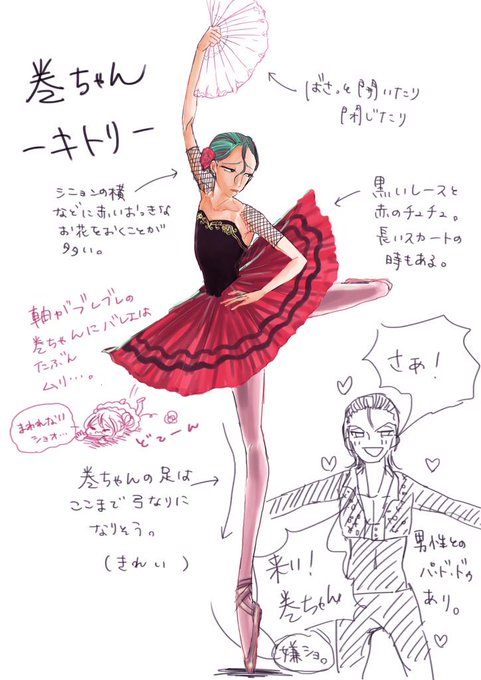 巻ちゃん
ーキトリー
ばさっと開いたり
閉じたり
シニョンの横
などに赤いおっきな
お花をおくことが
多い。
黒いレースと
赤のチュチュ。
長いスカートの
時もある。
軸がブレブレの
巻ちゃんにバレエは
たぶん
ムリ…。
まわれない
ショォ…
どてーん
巻ちゃんの足は
ここまで弓なりに
なりそう。
(きれい)
さぁ!
来い!
巻ちゃん
嫌ショ。
男性との
パ・ド・ドゥも
あり。